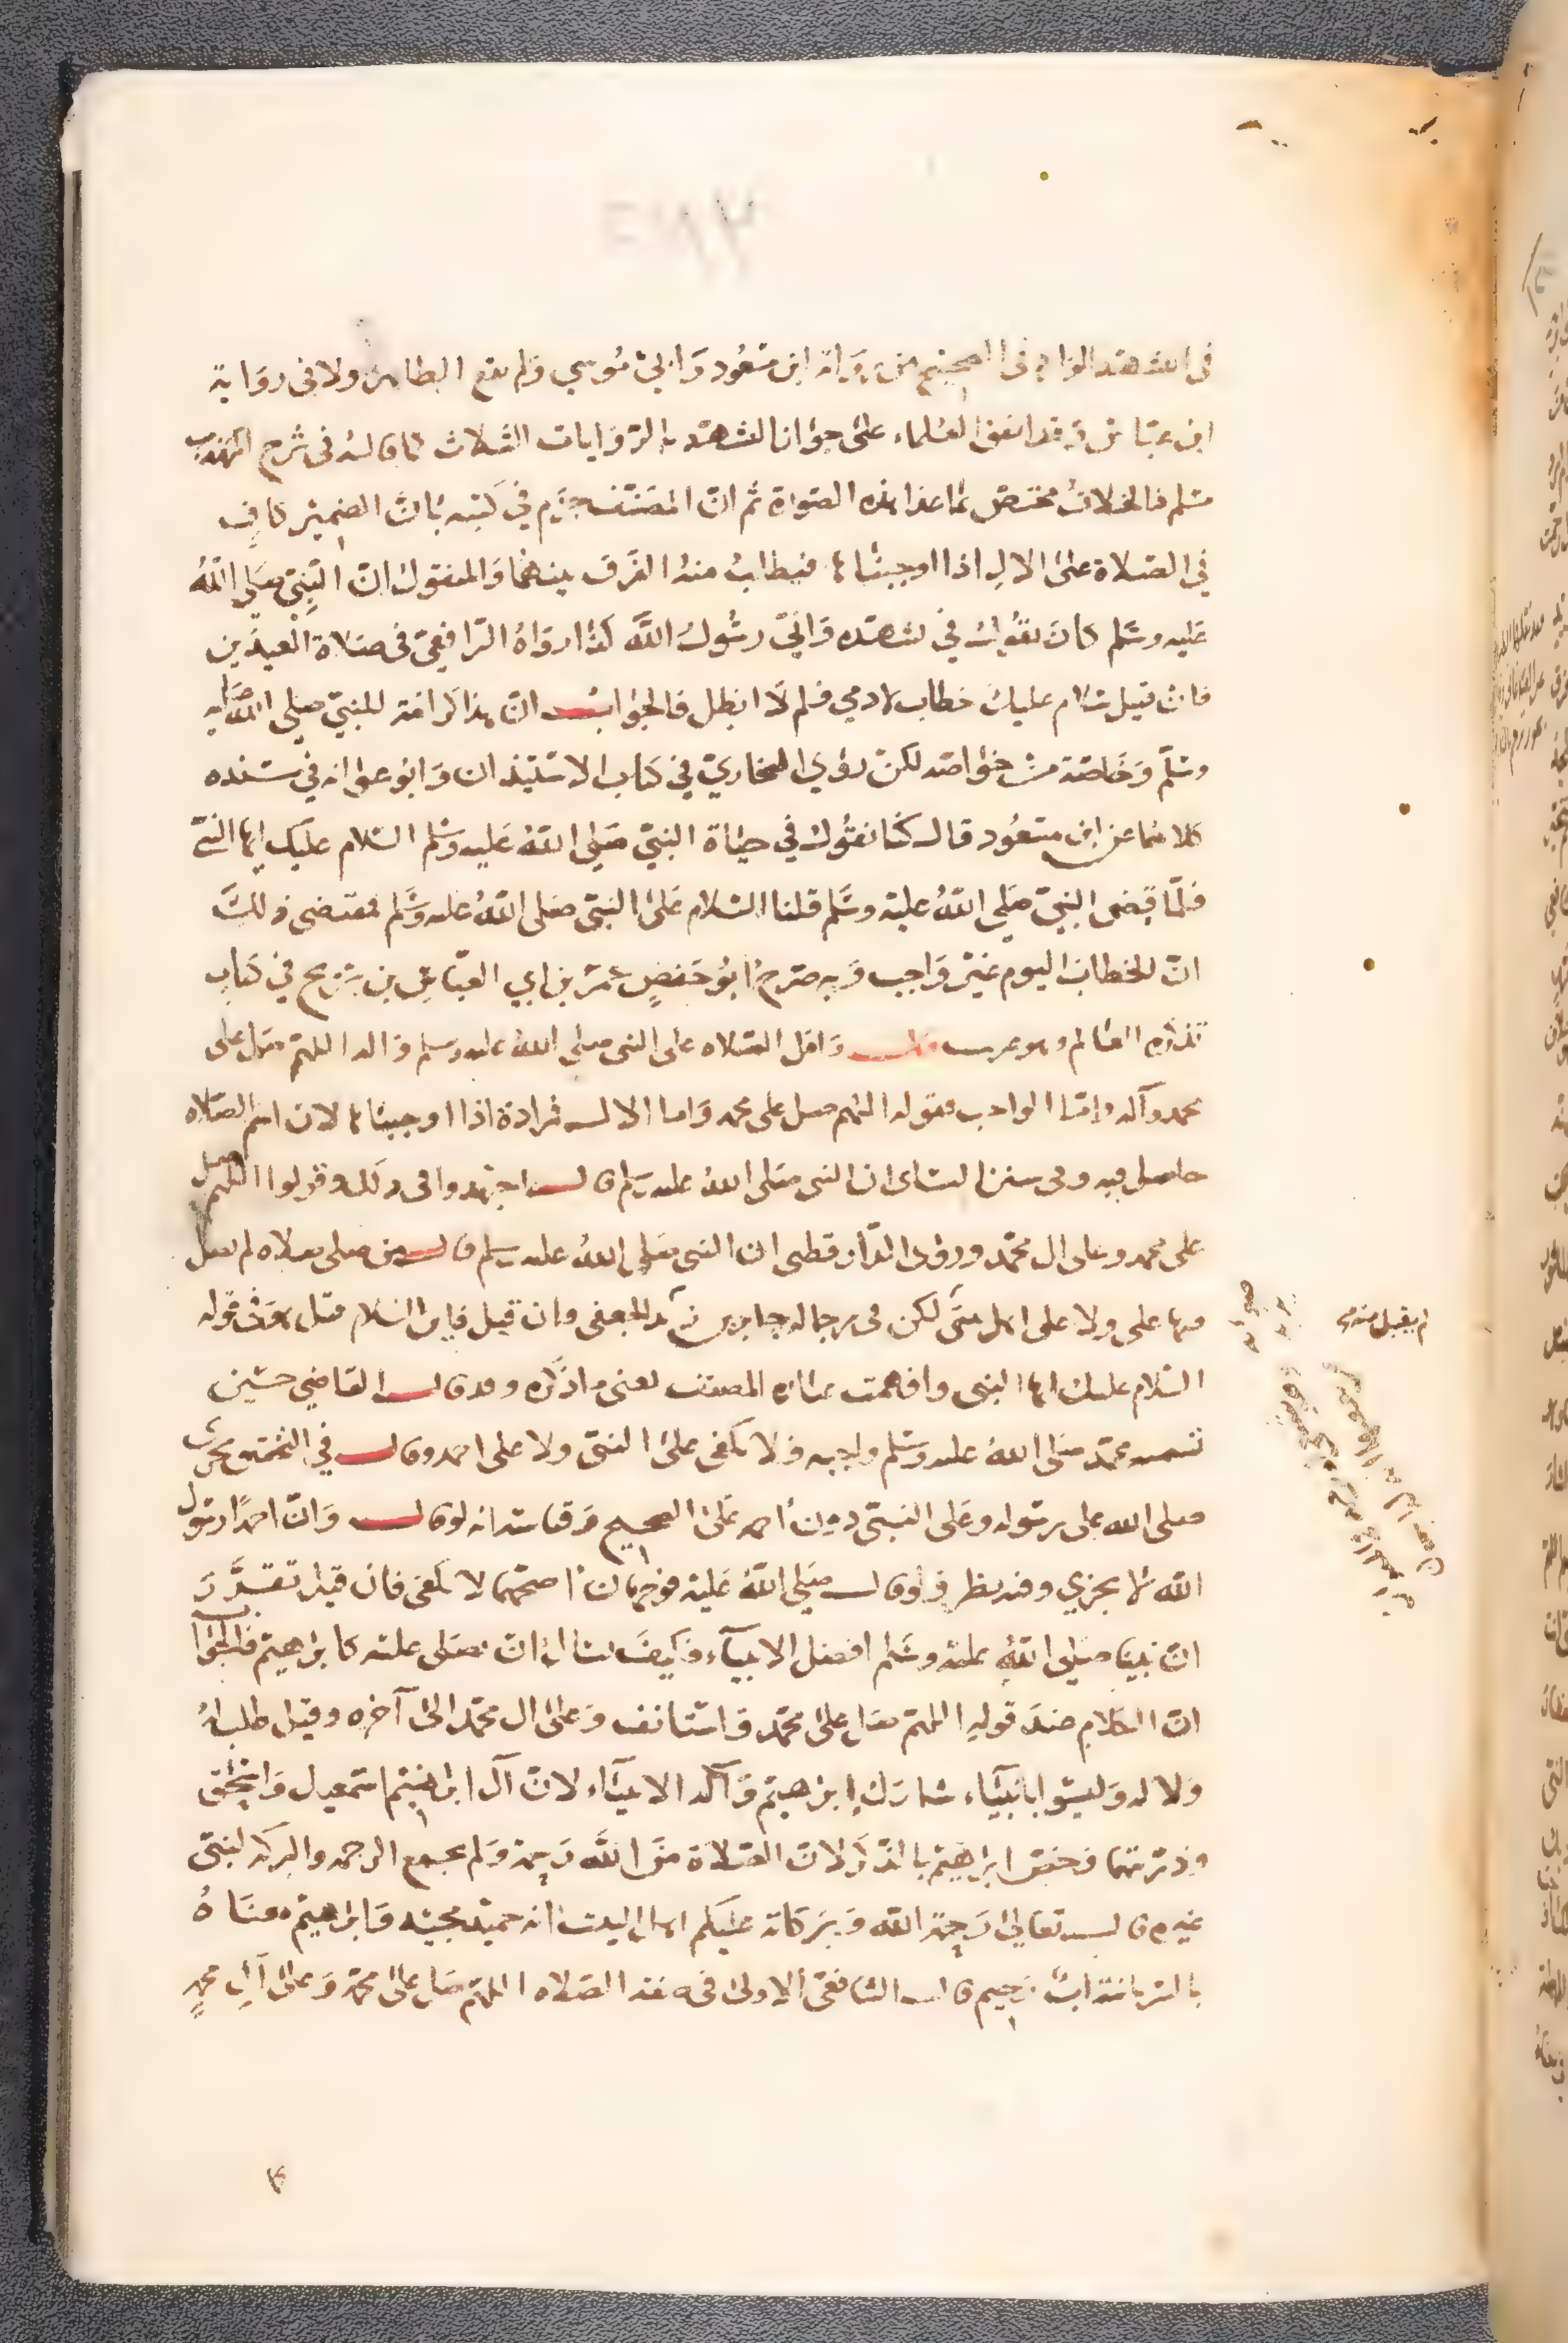 في التشهد الوارد في الصحيح من رواية ابن مسعود وابي موسي ولم يقع الظاهر ولا في رواية
ابن عباس وقد اتفق العلماء على جواز التشهد بالروايات الثلاث كما قاله في شرح المهذب
مسلم فالخلاف مختص بما عدا هذه الصورة ثم ان المصنف جزم في كتبه بان الضمير كاف
في الصلاة على الال اذا اوجبناها فيطالب منه الفرق بينهما والمنقول ان النبي صلى الله
عليه وسلم كان يقول في تشهده واني رسول الله كذا رواه الرافعي في صلاة العيدين
فان قيل سلام عليك خطاب لادمي فلم لا ابطل فالجواب ان هذا كرامة للنبي صلى الله عليه
وسلم وخاصة من خواصه لكن روي البخاري في كتاب الاستيذان وابو عوانه في مسنده
كلاهما عن ابن مسعود قال كنا نقول في حياة النبي صلى الله عليه وسلم السلام عليك ايها النبي
فلما قبض النبي صلى الله عليه وسلم قلنا السلام على النبي صلى الله عليه وسلم فمقتضى ذلك
ان الخطاب اليوم غير واجب وبه صرح ابو حفص عمر بن ابي العباس بن سريج في كتاب
تذكرة العالم وهو غريب قال واقل الصلاه على النبي صلى الله عليه وسلم واله اللهم صل على
محمد وآله واما الواجب فقوله اللهم صل على محمد واما الال فزيادة اذا اوجبناها لان اسم الصلاه
حاصل فيه وفي سنن النساى ان النبي صلى الله عليه وسلم قال اجتهدوا في وقولوا اللهم صل
على محمد وعلى ال محمد وروى الدارقطني ان النبي صلى الله عليه وسلم قال من صلى صلاه لم يصل
فيها علي ولا على اهل بيتي لكن في رجاله جابر بن يزيد الجعفي وان قيل فاين السلام قيل عرف قوله
السلام عليك ايها النبي وافهمت عباره المصنف يعني ما ذكره وقد قال القاضي حسين
تسميه محمد صلى الله عليه وسلم واجبه فلا يكفي على النبي ولا على احمد وقال في التحقيق يجزى
صلى الله على رسوله وعلى النبي دون احمد على الصحيح وقياسه انه لو قال وان احمدا رسول
الله لا يجزي وفيه نظر فلو قال صلى الله عليه فوجهان اصحهما لا يكفي فان قيل تقرر
ان نبينا صلى الله عليه وسلم افضل الانبيآء فكيف نسال ان يصلى عليه كابرهيم فالجواب
ان الكلام عند قوله اللهم صل على محمد واستانف وعلى ال محمد الى آخره وقيل طلب له
ولاله وليسوا بانبيآء مشاركة إبرهيم وآله الانبيآء لان آل ابرهيم اسمعيل واسحق
وذريتهما فخص ابرهيم بالذكر لان الصلاة من الله رحمة ولم يجمع الرحمه والبركه لنبي
غيره قال تعالى رحمة الله وبركاته عليكم اهل البيت انه حميد مجيد وابرهيم معناه
بالسريانية اب رحيم قال الشافعي الاولى في هذه الصلاه اللهم صل على محمد وعلى آل محمد
لم يقبل منه